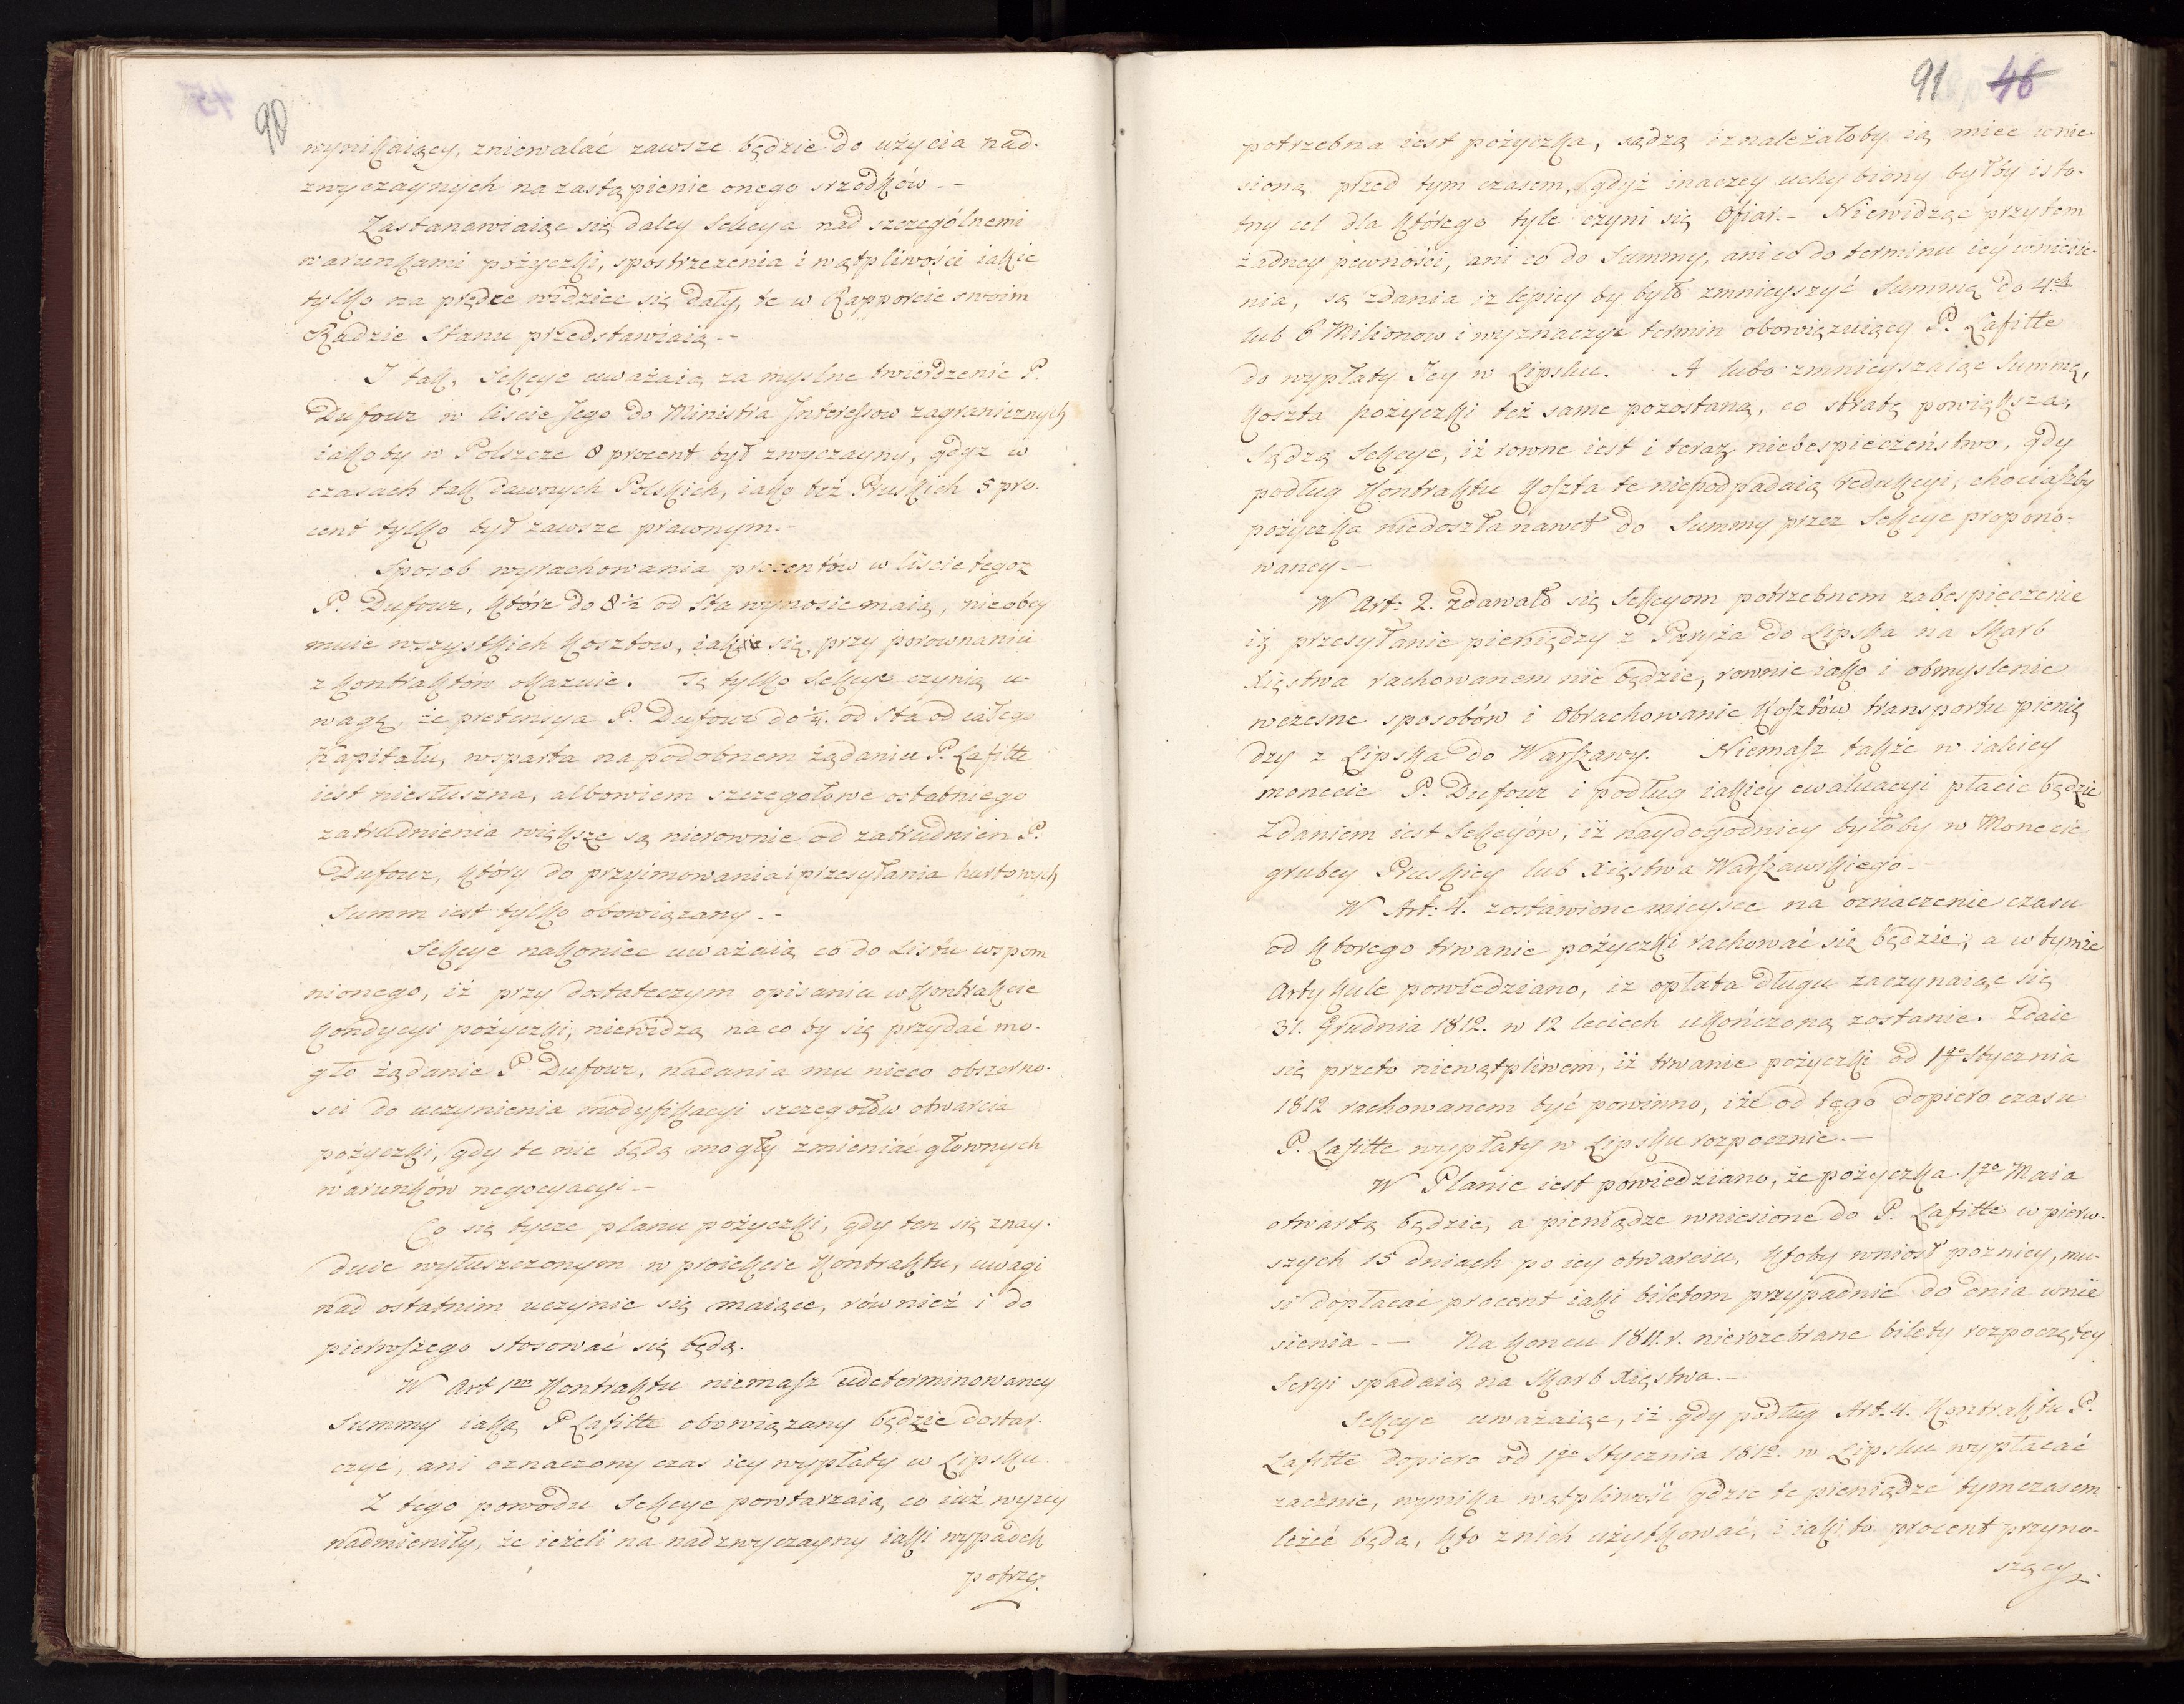 90
wynikaiący, zniewalać zawsze będzie do użycia nad-
zwyczaynych na zastąpienie onego srzodków.-
Zastanawiaiąc się daley Sekcye nad szczególnemi
warunkami pożyczki, spostrzeżenia i wątpliwości iakie
tylko na prędce widzieć się dały, te w Rapporcie swoim
Radzie Stanu przedstawiaią.-
I tak, Sekcye uważaią za myslne twierdzenie P.
Dufour w liście Jego do Ministra Interessow zagranicznych
iakoby w Polszcze 8 procent był zwyczayny, gdyz w
czasach tak dawnych Polskich, iako też Pruskich 5 pro-
cent tylko był zawsze prawnym.-
Sposob wyrachowania procentów w liście tegoż
P. Dufour, które do 8½ od Sta wynosić maią, nie obey
muie wszystkich kosztow, iakie się przy porownaniu
z kontraktów okazuie. Tę tylko Sekcye czynią u-
wagę, że pretensya P. Dufour do ¼ od Sta od całego
Kapitału, wsparta na podobnem żądaniu P. Lafitte
iest niesłuszna, albowiem szczegołowe ostatniego
zatrudnienia większe są nierownie od zatrudnien P.
Dufour, który do przyimowania i przesyłania hurtowych
Summ iest tylko obowiązany.-
Sekcye nakoniec uważaią co do Listu wspom
nionego, iż przy dostateczym opisaniu w kontrakcie
kondycyi pożyczki, niewidzą na co by się przydać mo-
gło żądanie P. Dufour, nadania mu nieco obszerno-
sci do uczynienia modyfikacyi szczegołów otwarcia
pożyczki, gdy te nie będą mogły zmieniać głownych
warunków negocyacyi.-
Co się tycze planu pożyczki, gdy ten się znay-
duie wyłuszczonym w proiekcie Kontraktu, uwagi
nad ostatnim uczynic się maiące, również i do
pierwszego stosować się będą.
W Art 1m Kontraktu niemasz udeterminowaney
Summy iaką P. Lafitte obowiązany będzie dostar-
czyć, ani oznaczony czas iey wypłaty w Lipsku.
Z tego powodu Sekcye powtarzaią co iuż wyżey
nadmieniły, że ieżeli na nadzwyczayny iaki wypadek
potrze-
91 46
potrzebna iest pożyczka, sądzą iż należałoby ią mieć wnie-
sioną przed tym czasem, gdyż inaczey uchybiony byłby isto-
tny cel dla którego tyle czyni się Ofiar.- Niewidząc przytem
żadney pewności, ani co do Summy, ani co do terminu iey wniesie-
nia, są zdania iż lepiey by było zmnieyszyć Summę do 4ch
lub 6 Milionow i wyznaczyć termin obowiązuiący P. Lafitte
do wypłaty Jey w Lipsku. A lubo zmnieyszaiąc Summę,
koszta pożyczki też same pozostaną, co stratę powiększa,
Sądzą Sekcye, iż rowne iest i teraz niebespieczeństwo, gdy
podług Kontraktu koszta te niepodpadaią redukcyi, chociaszby
pożyczka niedoszła nawet do Summy przez Sekcye propono-
waney.-
W Art: 2. zdawało się Sekcyom potrzebnem zabespieczenie
iż przesyłanie pieniędzy z Paryża do Lipska na Skarb
Xięstwa rachowanem nie będzie, rownie iako i obmyslenie
wczesne sposobów i Obrachowanie kosztów transportu pienię
dzy z Lipska do Warszawy. Niemasz także w iakiey
monecie P. Dufour i podług iakiey ewaluacyi płacić będzie
Zdaniem iest Sekcyów, iż naydogodniey byłoby w Monecie
grubey Pruskiey lub Xięstwa Warszawskiego.-
W Art: 4. zostawione mieysce na oznaczenie czasu
od ktorego trwanie pożyczki rachować się będzie; a w tymże
Artykule powiedziano, iż opłata długu zaczynaiąc się
31. Grudnia 1812. w 12 leciech ukończoną zostanie. Zdaie
się przeto niewątpliwem, iż trwanie pożyczki od 1go Stycznia
1812 rachowanem być powinno, i że od tego dopiero czasu
P. Lafitte wypłaty w Lipsku rozpocznie.-
W Planie iest powiedziano, że pożyczka 1go Maia
otwartą będzie, a pieniądze wniesione do P. Lafitte w pierw-
szych 15 dniach po iey otwarciu. Ktoby wniosł pozniey, mu-
si dopłacać procent iaki biletom przypadnie do dnia wnie
sienia.- Na koncu 1811. r. nierozebrane bilety rozpoczętey
Seryi spadaią na Skarb Xięstwa.-
Sekcye uważaiąc, iż gdy podług Art. 4. Kontraktu P.
Lafitte dopiero od 1go Stycznia 1812. w Lipsku wypłacać
zacznie, wynika wątpliwość gdzie te pieniądze tymczasem
leżeć będą, kto z nich użytkować, i iaki to procent przyno-
szący